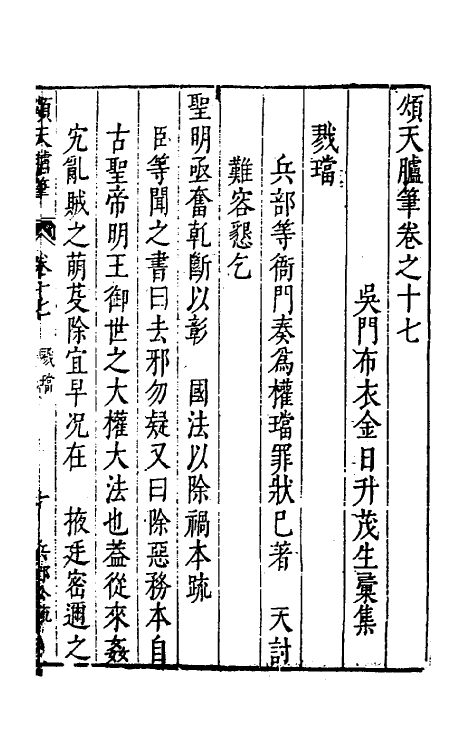 頌天臚筆卷之十七
吳門布衣金日升茂生彚集
戮璫
兵部等衙門奏爲權璫罪狀已著　天討
難容懇乞
聖明亟奮乾斷以彰　國法以除禍本疏
臣等聞之書曰去邪勿疑又曰除惡務本自
古聖帝明王御世之大權大法也葢從來姦
宄亂賊之萌芟除宜早况在　掖廷密邇之
頌天臚筆　卷十七　戮璫